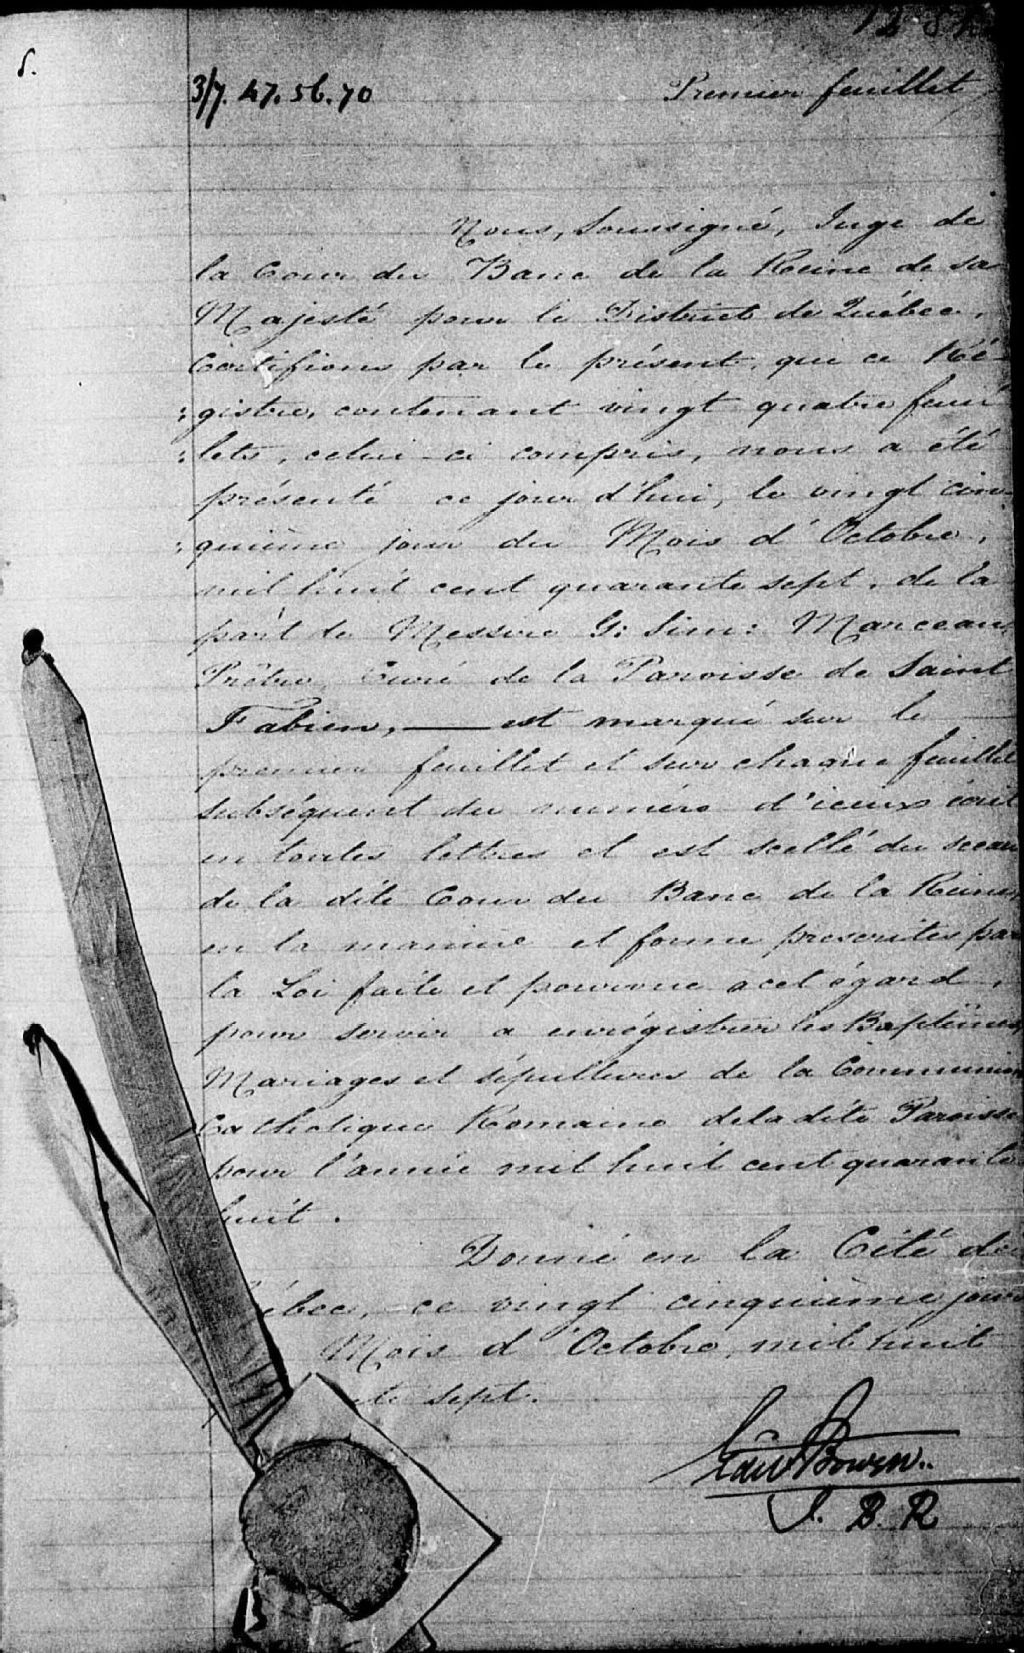 S.
3/7. 47. 56. 70 Premier feuillet
Nous, Soussigné, Juge de
la Cour du Banc de la Reine de sa
Majesté pour le District de Québec,
Certifions par le présent, que ce Ré-
:gistre, contenant vingt quatre feuil
:lets, celui-ci compris, nous a été
présenté ce jour d'hui, le vingt cin-
:quième jour du Mois d'Octobre,
mil huit cent quarante sept, de la
part de Messire G: Sim: Marceau,
Prêtre, Curé de la Paroisse de Saint
Fabien, — est marqué sur le —
premier feuillet et sur chaque feuillet
subséquent du numéro d'iceux écrit
en toutes lettres et est scellé du sceau
de la dite Cour du Banc de la Reine,
en la manière et forme prescrites par
la Loi faite et pourvue a cet égard,
pour servir a enrégistrer les Baptêmes,
Mariages et sépultures de la Communion
Catholique Romaine de la dite Paroisse
pour l'année mil huit cent quarante
huit.
Donné en la Cité de
ébec, ce vingt cinquième jour
Mois d'Octobre, mil huit
te sept.
Edw Bowen..
J. B. R